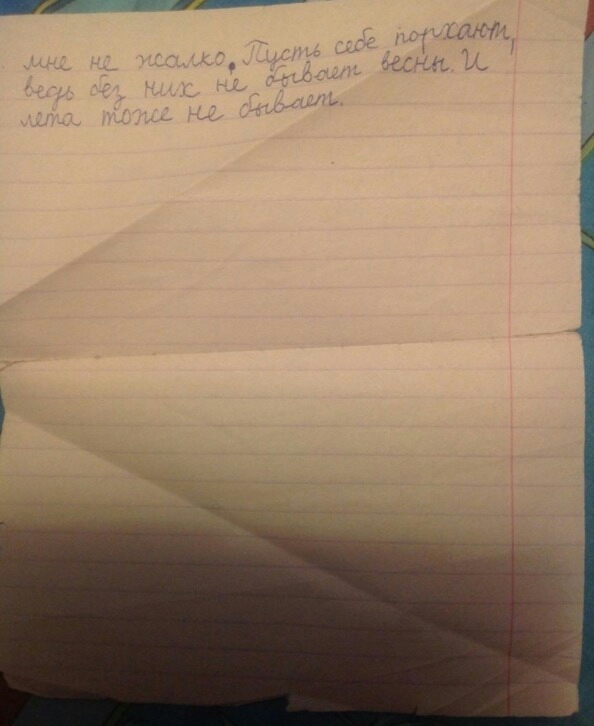 мне не жалко. Пусть себе порхают,
ведь без них не бывает весны. И
лета тоже не бывает.